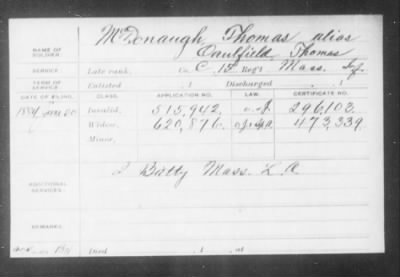 NAME OF SOLDIER: McDonaugh, Thomas alias
Caulfield, Thomas
SERVICE: Late rank, Co. C, 15 Reg't Mass. Inf.
TERM OF SERVICE: Enlisted , 1 Discharged , 1
DATE OF FILING. CLASS. APPLICATION NO. LAW. CERTIFICATE NO.
1884 Invalid, 515,942 296,103
Widow, 620,876 473,339
Minor,
2 Batty Mass. L. A
ADDITIONAL SERVICES:
REMARKS:
Died , 1 , at